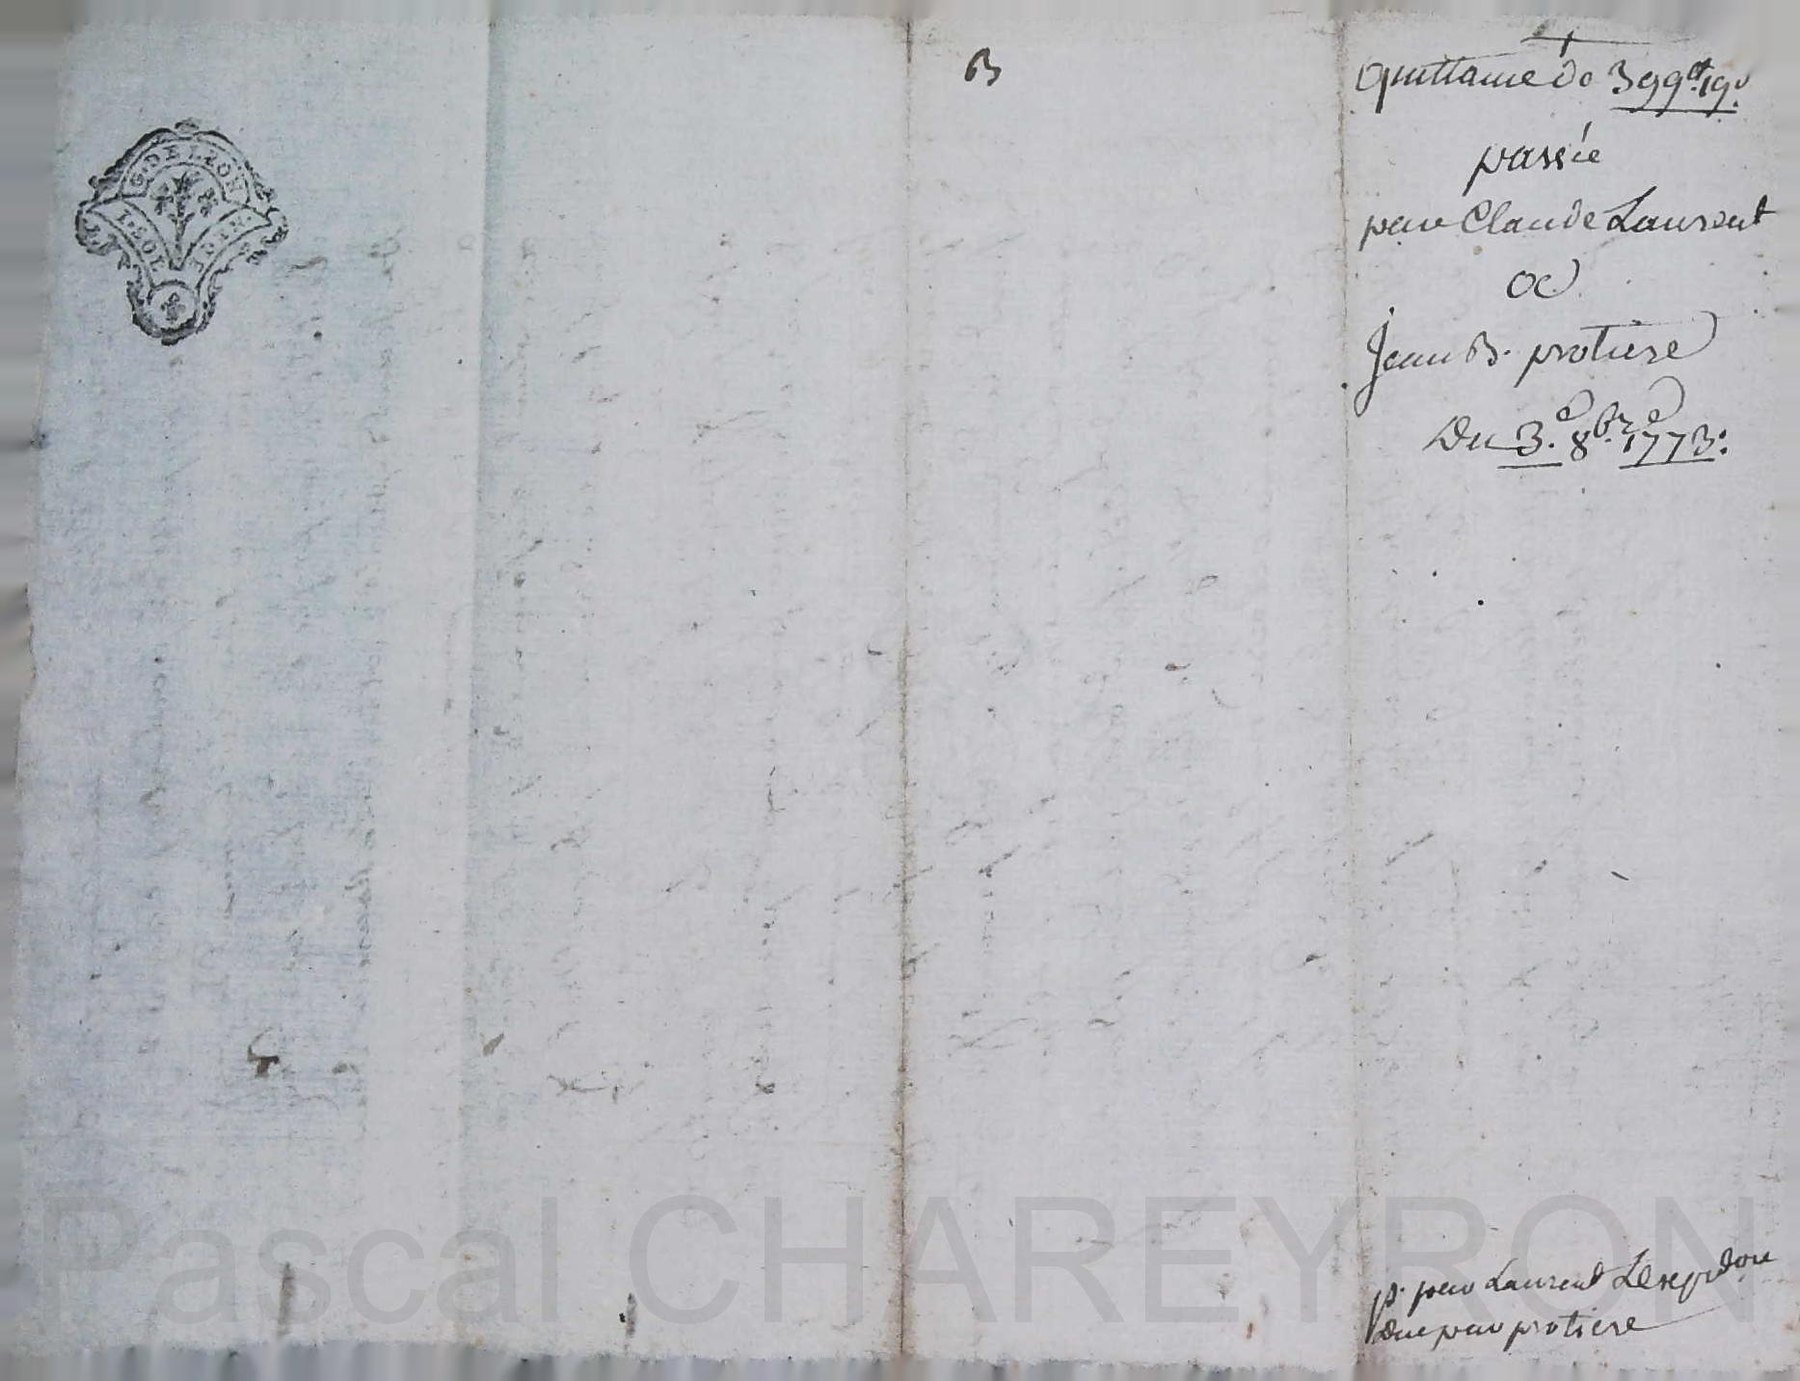 B
G. DE LYON
Quittance de 399# 19s
passée
par Claude Laurent
a
Jean B. protiere
Du 3.e 8bre 1773.
pd. par Laurent L'expedon
due par protiere
Pascal CHAREYRON